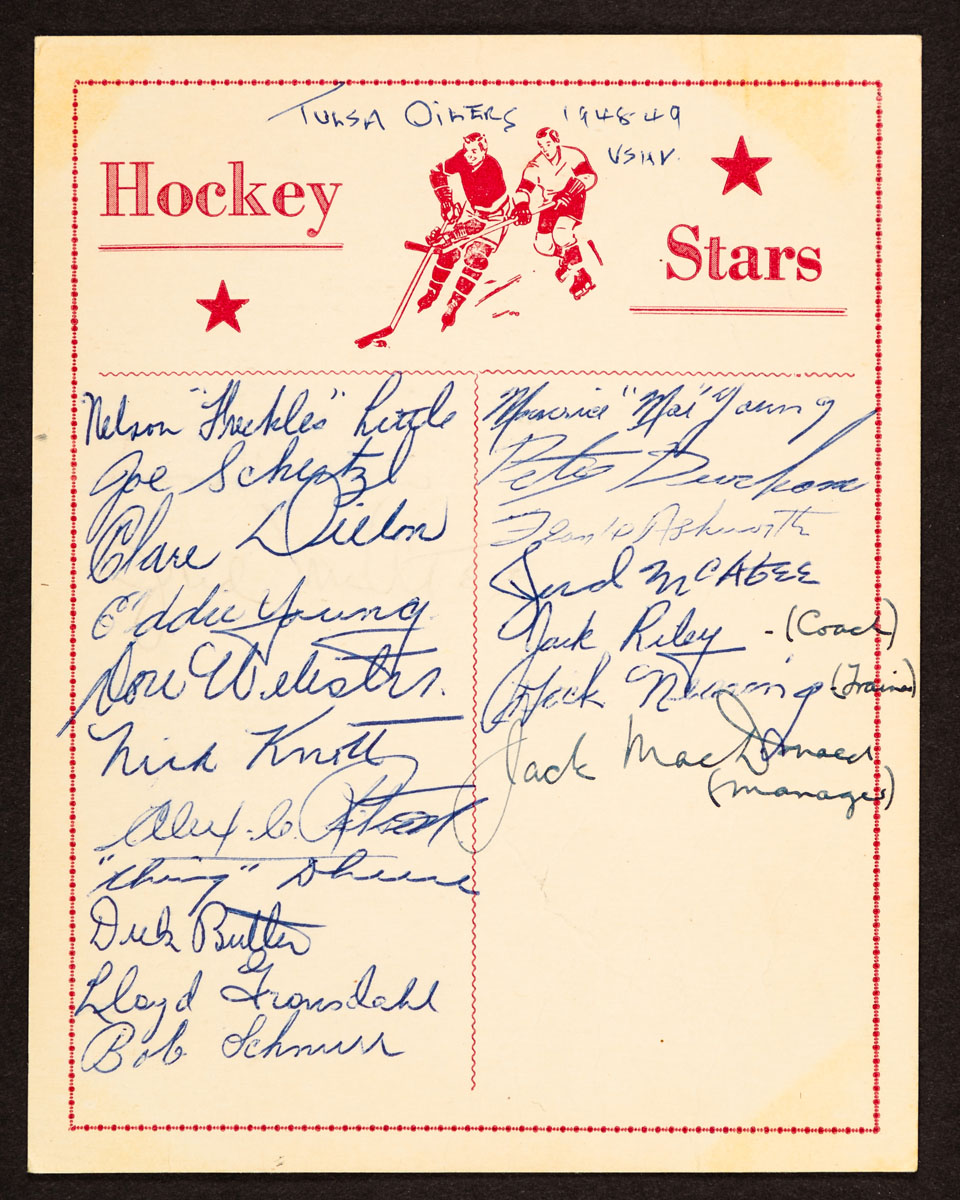 Tulsa Oilers 1948-49
USHL
Hockey
Stars
Nelson "Freckles" Little
Joe Schertzl
Clare
Eddie Young
Don Webster
Nick Knott
Alex. C. Ritson
"Ching"
Dick Butler
Lloyd Gronsdahl
Bob Schnurr
Maurice "Moe" Young
Pete Durham
Frank Ashworth
Jerd McAtee
Jack Riley - (Coach)
Dick (Trainer)
Jack MacDonald
(Manager)